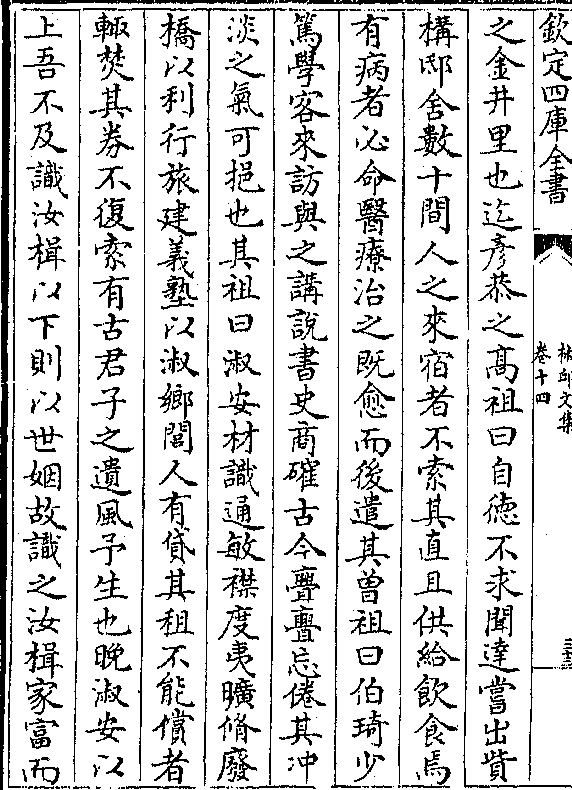 欽定四庫全書
卷十四
之金井里也迄彦恭之髙祖曰自徳不求聞達嘗出貲
構邸舍數十間人之來宿者不索其直且供給飲食焉
有病者必命醫療治之既愈而後遣其曽祖曰伯琦少
篤學客來訪與之講説書史商確古今亹亹忘倦其冲
淡之氣可挹也其祖曰淑安材識通敏襟度夷曠脩廢
橋以利行旅建義塾以淑鄉閭人有貸其租不能償者
輙焚其劵不復索有古君子之遺風予生也晚淑安以
上吾不及識汝楫以下則以世姻故識之汝楫家富而